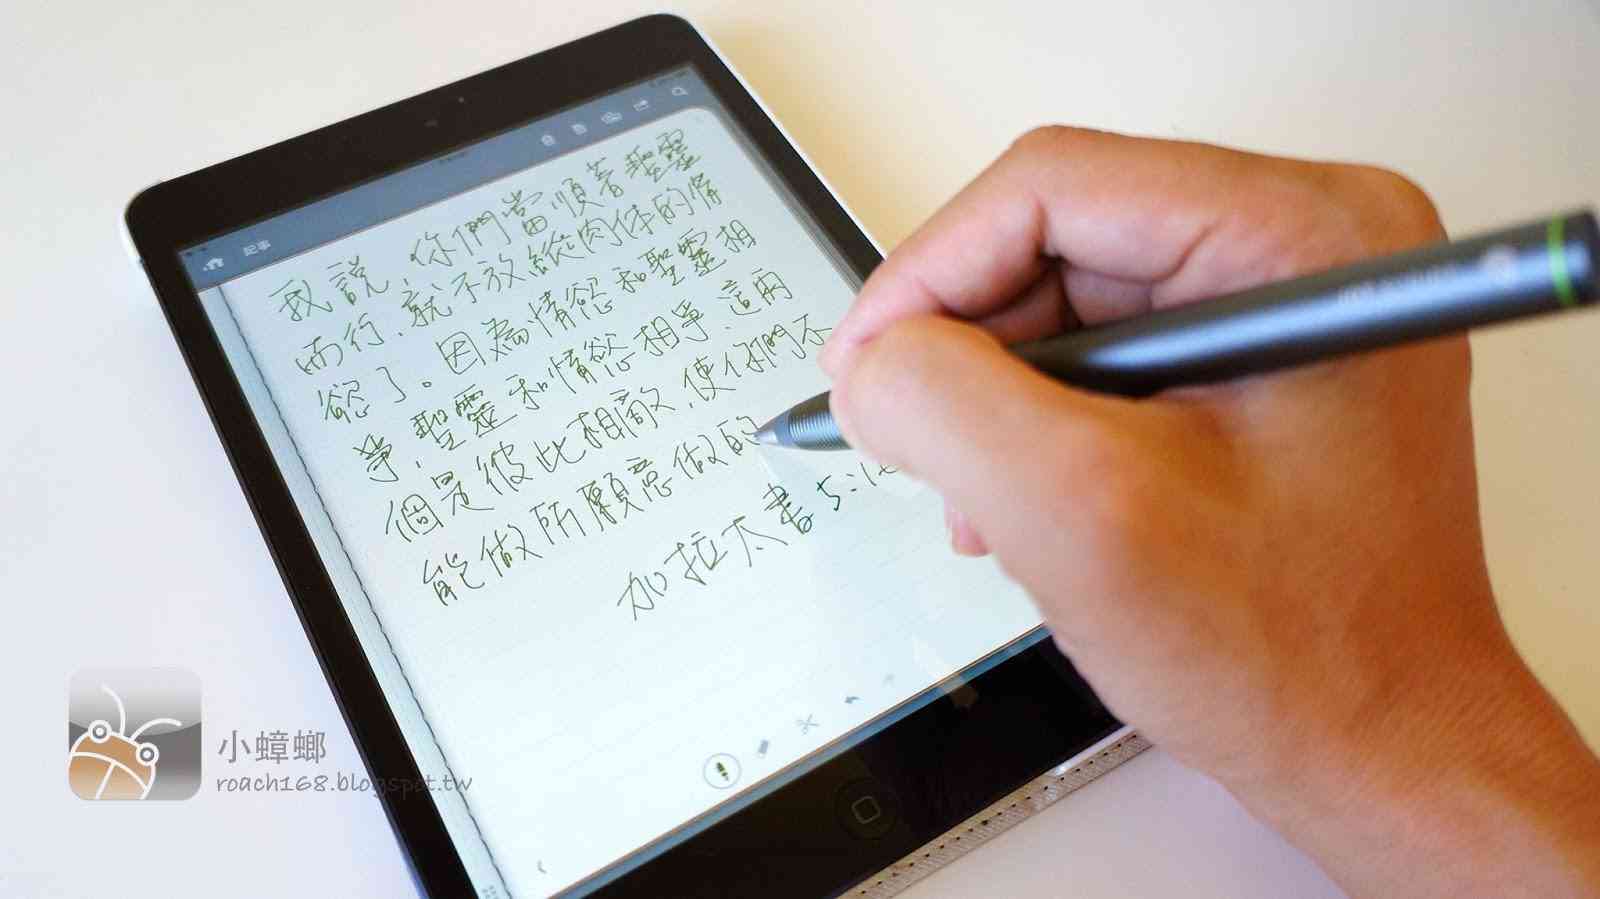 記事
我說,你們當順著聖靈
而行.就不放縱肉体的情
慾了。因為情慾和聖靈相
爭.聖靈和情慾相爭.這兩
個是彼此相敵.使你們不
能做所願意做的
加拉太書5:16
小蟑螂
roach168.blogspot.tw